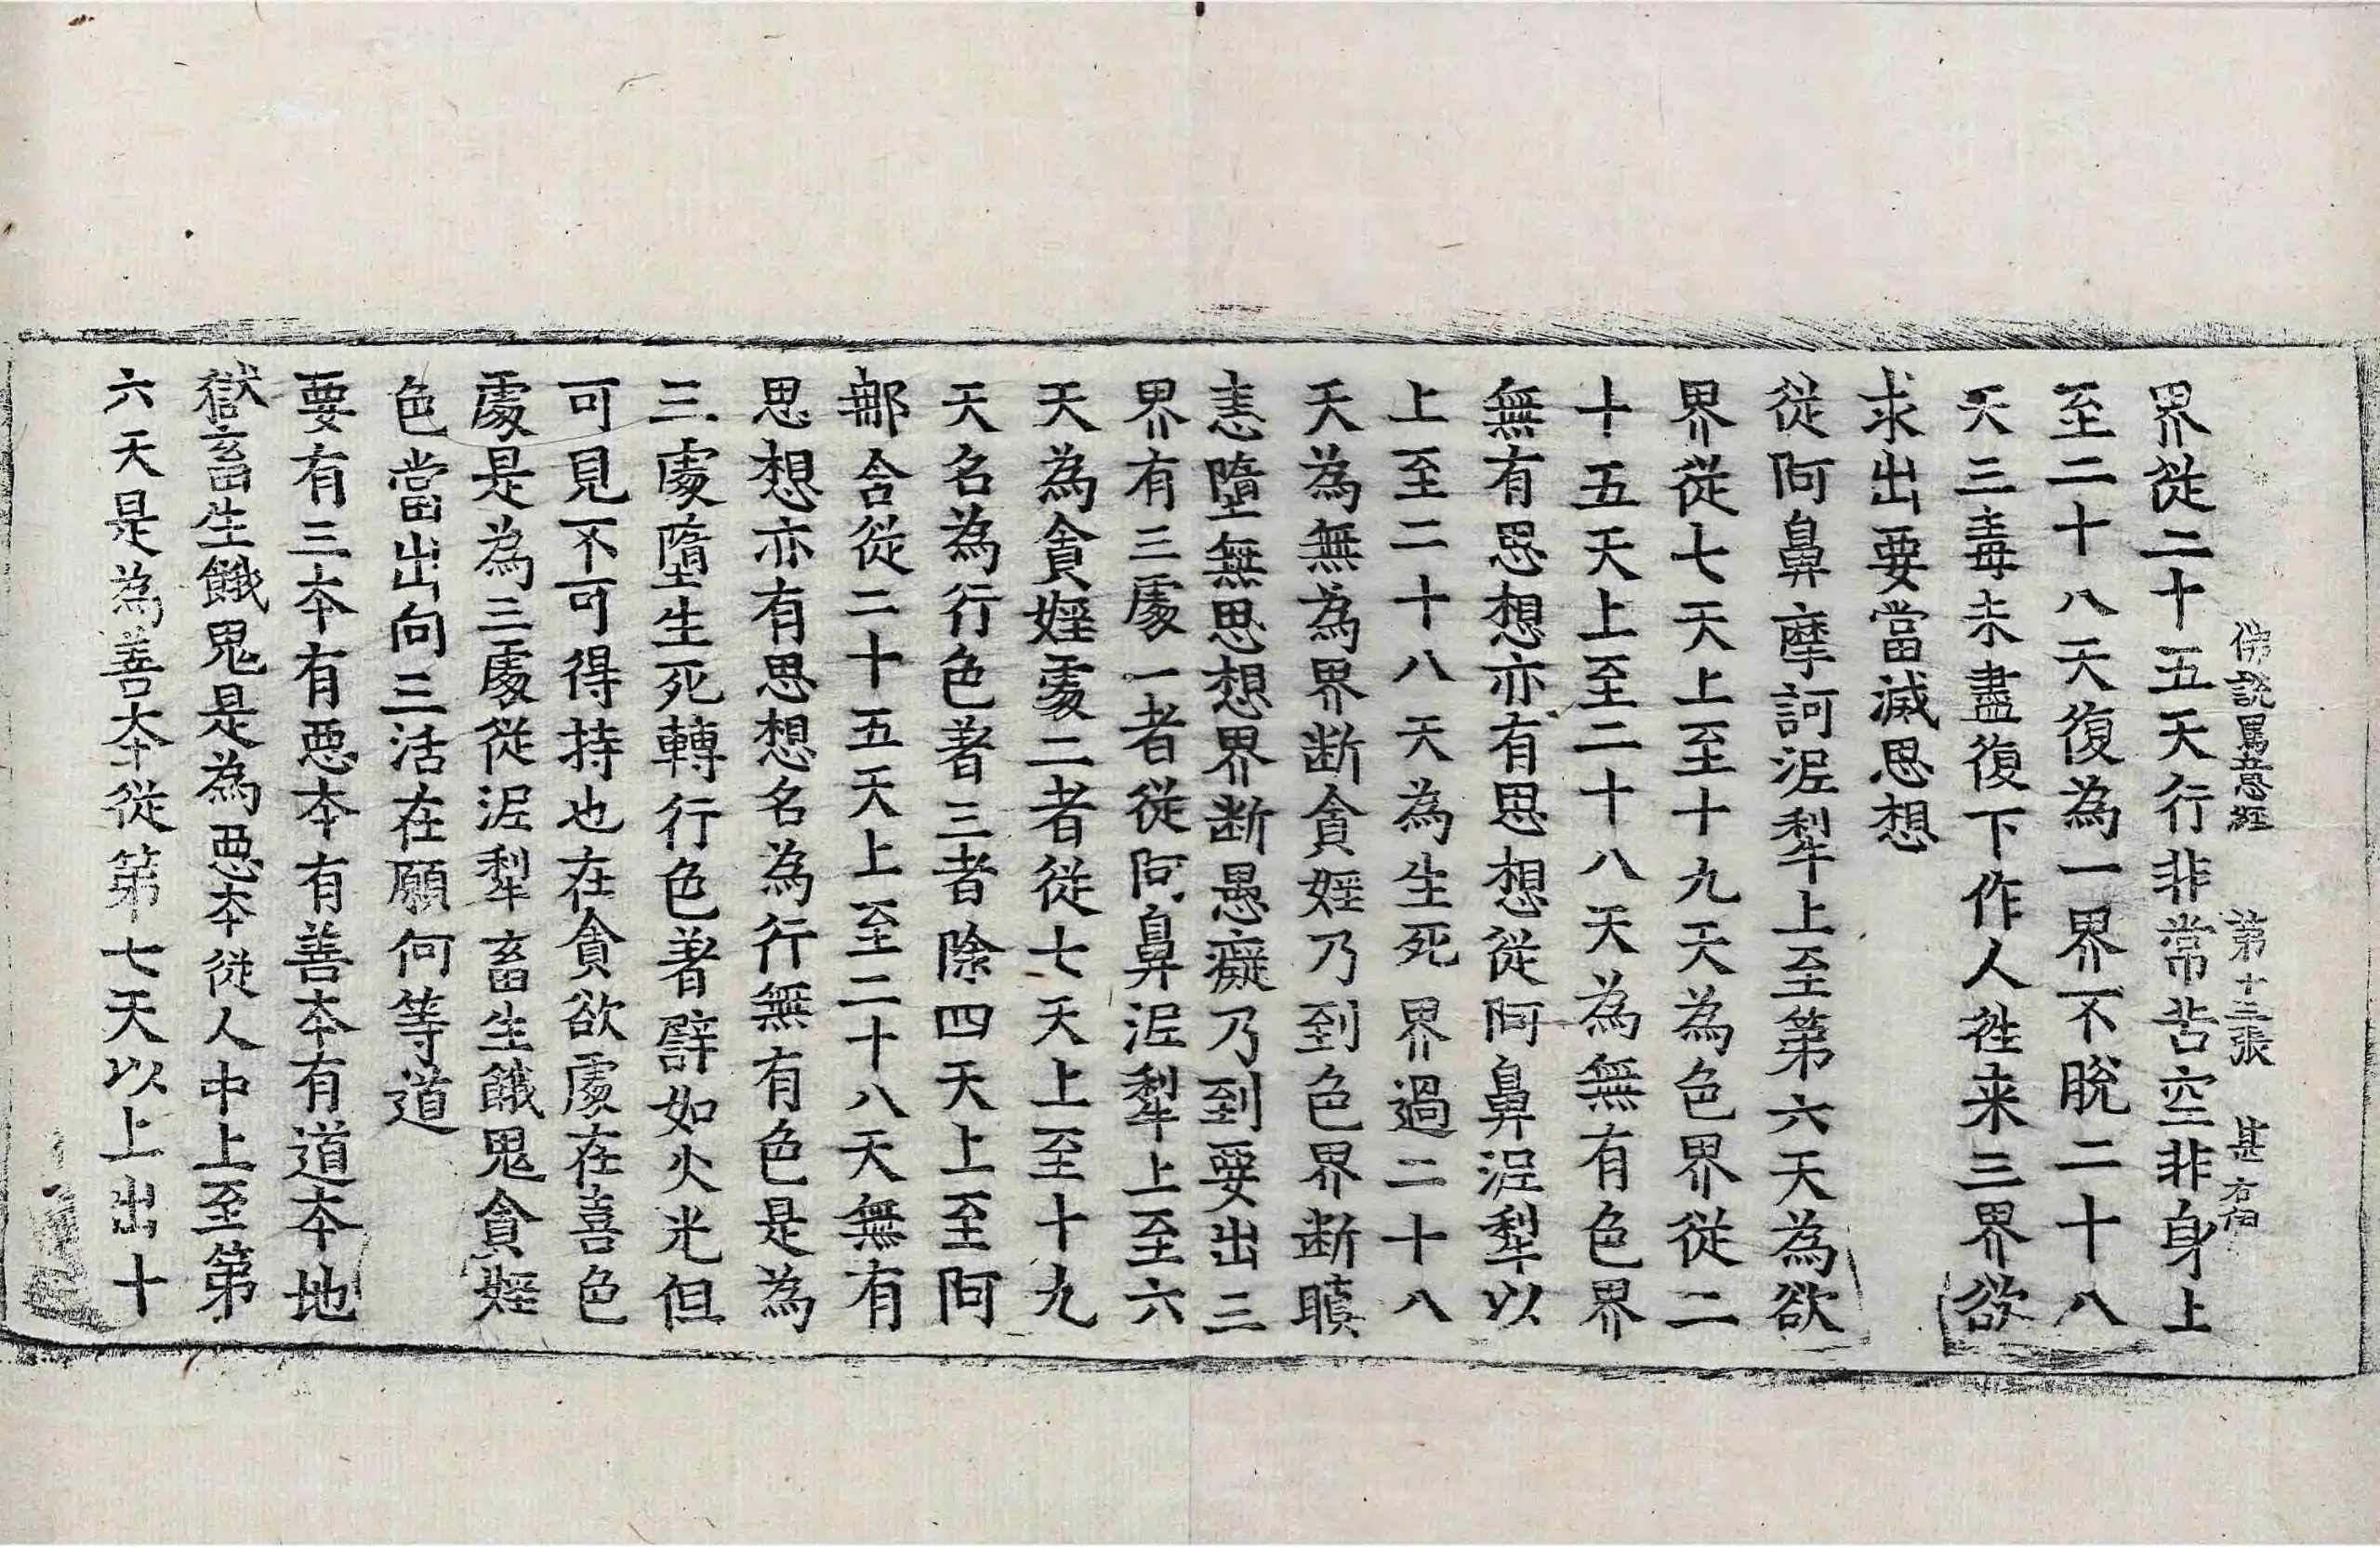 佛說罵意經 第十三張 甚
界從二十五天行非常苦空非身上
至二十八天復為一界不脫二十八
天三毒未盡復下作人徃来三界欲
求出要當滅思想
從阿鼻摩訶泥犁上至第六天為欲
界從七天上至十九天為色界從二
十五天上至二十八天為無有色界
無有思想亦有思想從阿鼻泥犁以
上至二十八天為生死界過二十八
天為無為界断貪婬乃到色界断瞋
恚墮無思想界断愚癡乃到要出三
界有三處一者從阿鼻泥犁上至六
天為貪婬處二者從七天上至十九
天名為行色著三者除四天上至阿
那含從二十五天上至二十八天無有
思想亦有思想名為行無有色是為
三處墮生死轉行色著辟如火光但
可見不可得持也在貪欲處在喜色
處是為三處從泥犁畜生餓鬼貪婬
色當出向三活在願何等道
要有三本有惡本有善本有道本地
獄畜生餓鬼是為惡本從人中上至第
六天是為善本從第七天以上出十